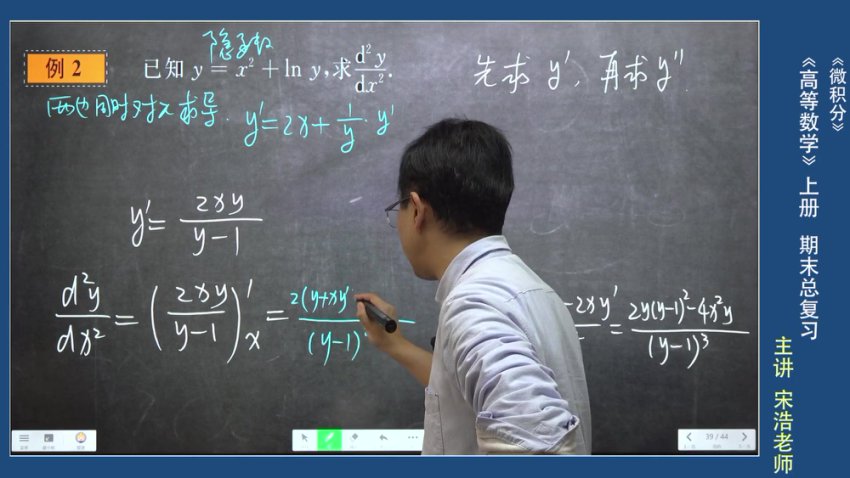 隐函数
例 2 已知 y = x² + ln y, 求 d²y/dx².
先求 y′, 再求 y″.
两边同时对x求导. y′=2x+1/y·y′
y′= 2xy/(y-1)
d²y/dx² = (2xy/(y-1))′ₓ = 2(y+xy′ /(y-1) -2xy′ = (2y(y-1)²-4x²y)/(y-1)³
39 / 44
《微积分》
《高等数学》上册 期末总复习
主讲 宋浩老师